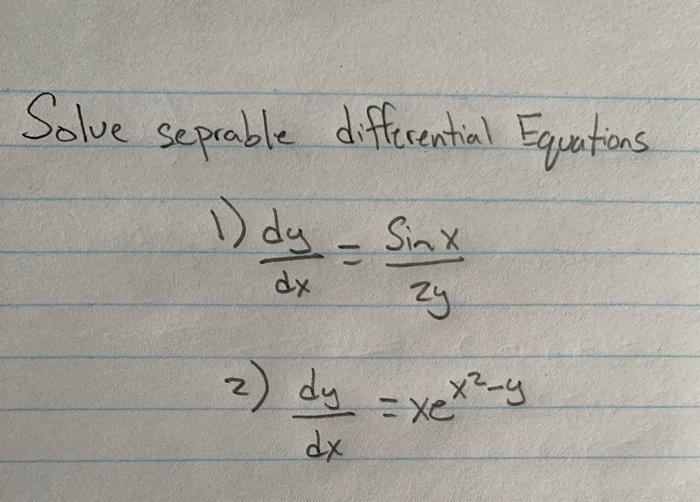 Solve seprable differential Equations
1) dy/dx = Sinx/2y
2) dy/dx = xe^x²-y